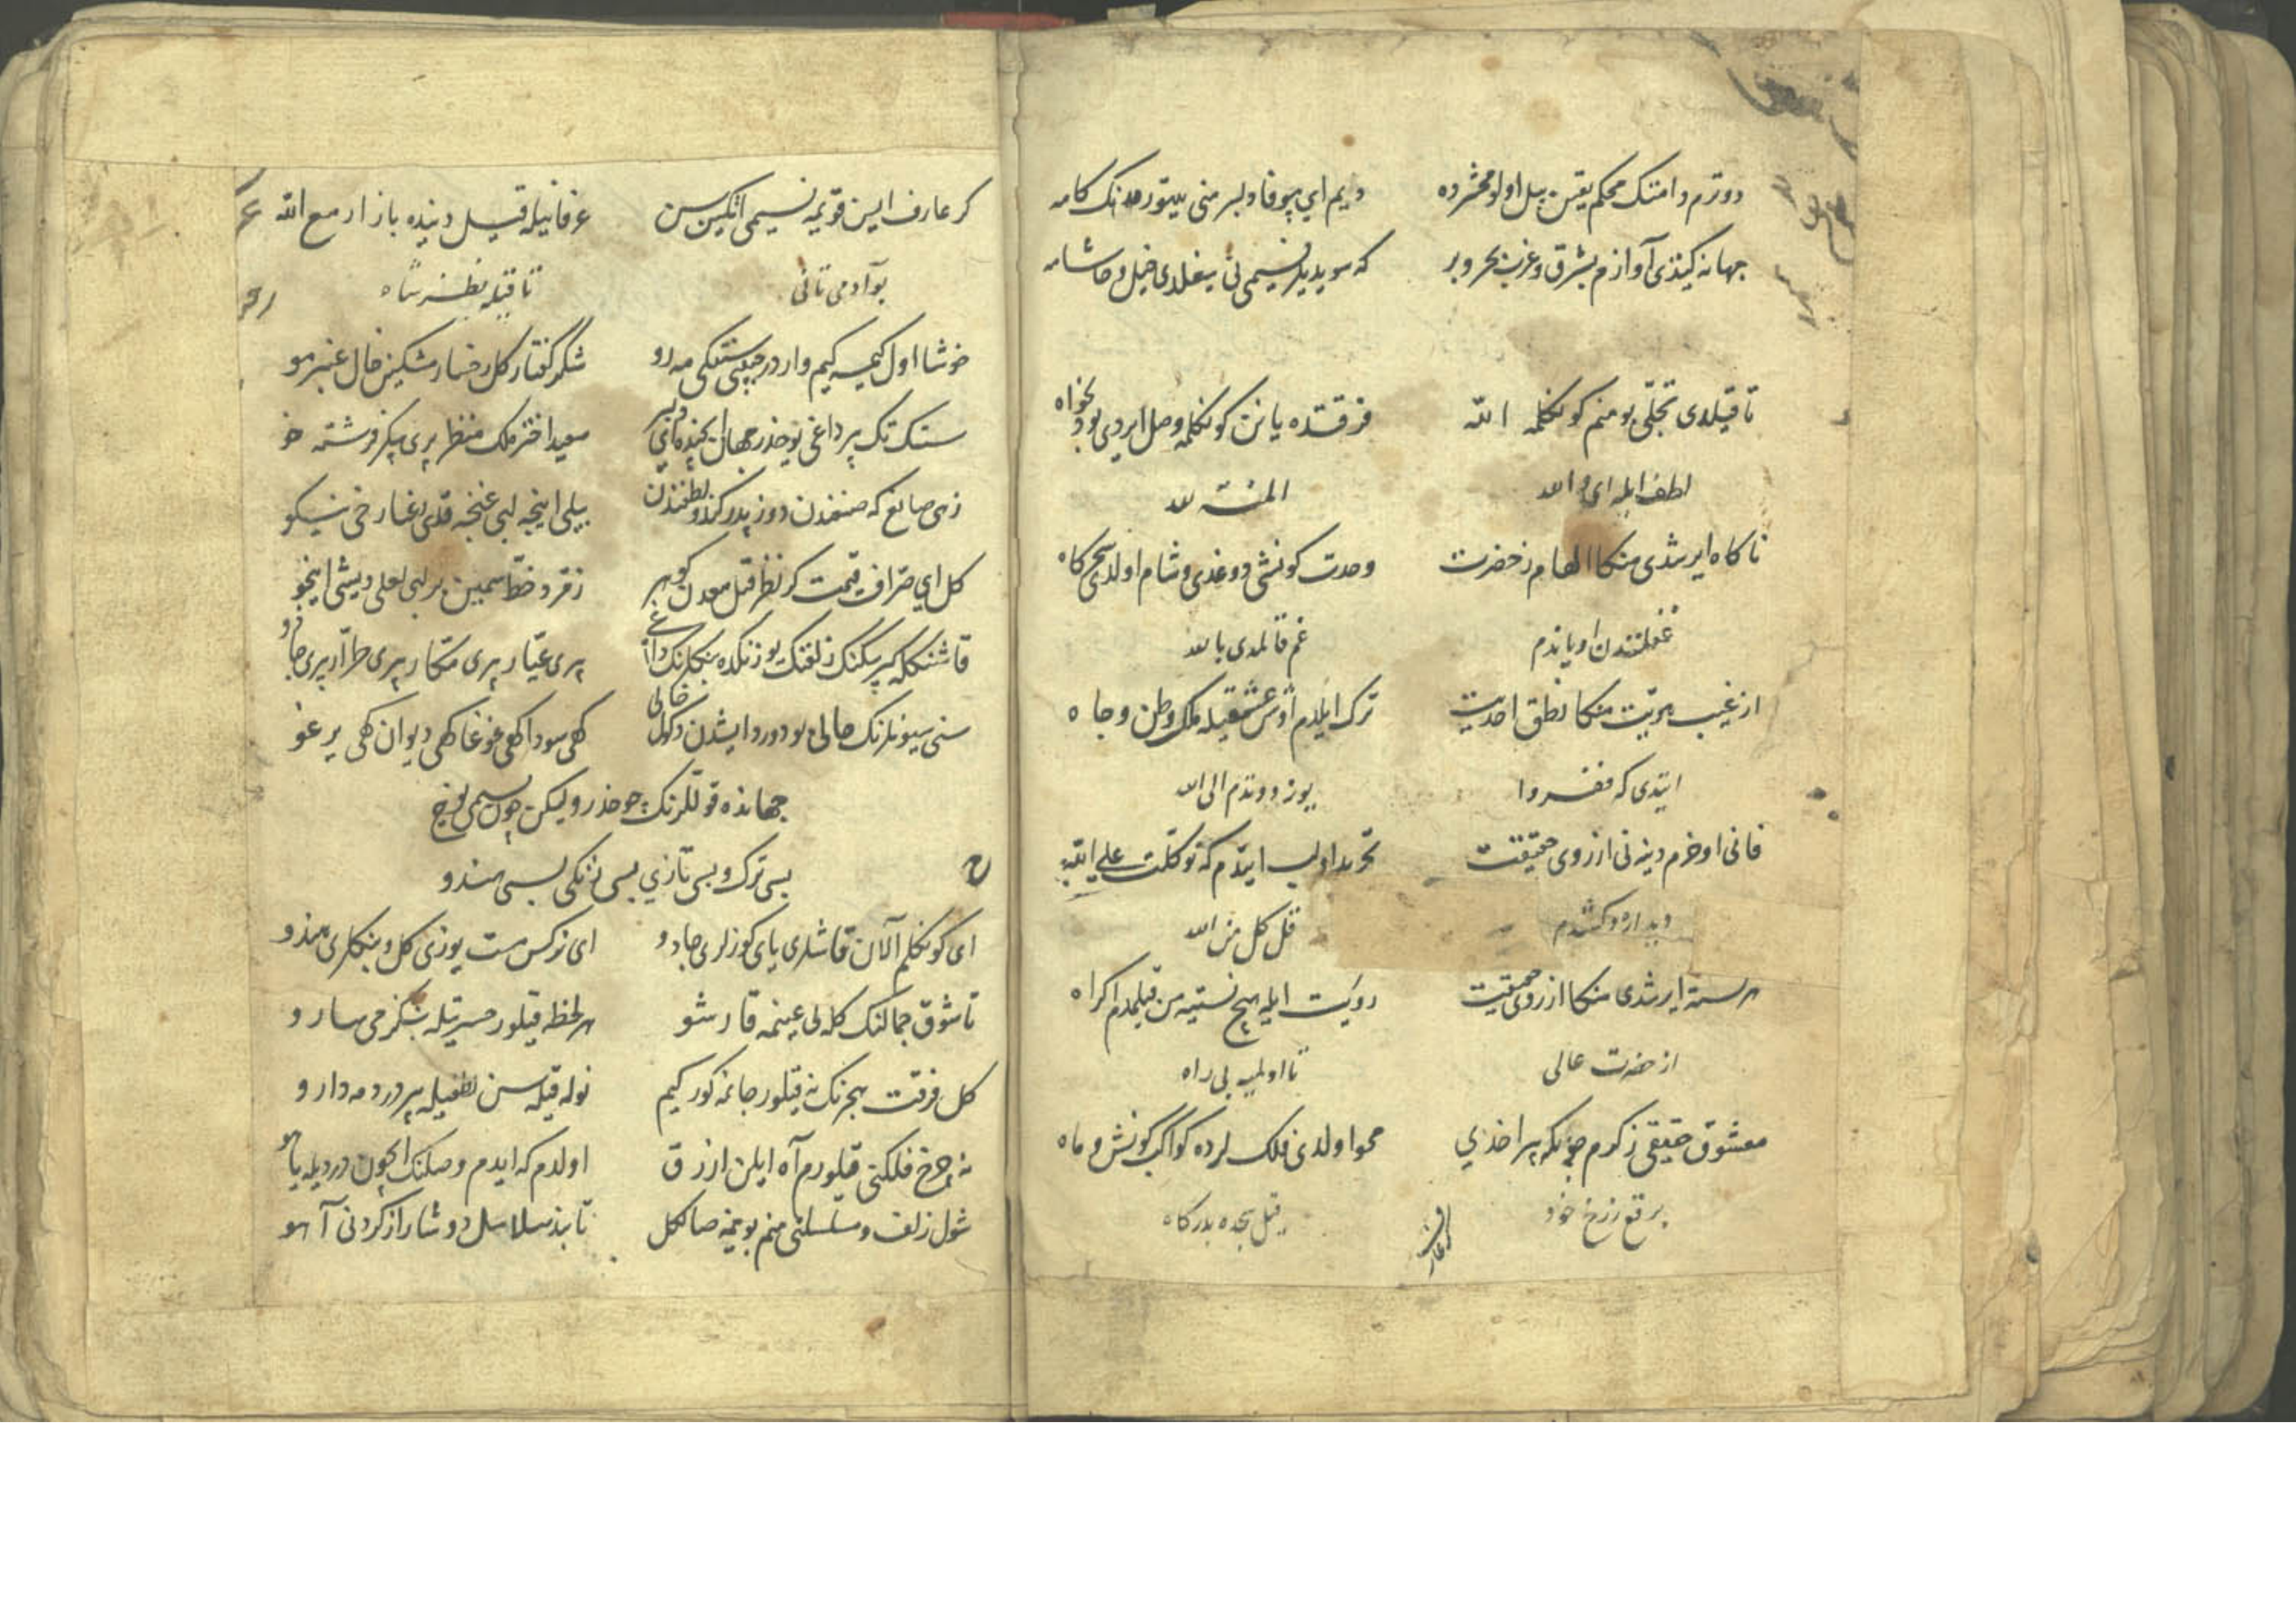 دوترم دامننک محکم یقین بیل اولو محشرده دیم ای بیوفا دلبر منی یتور کامه
جهانه کیتدی آوازم بشرق و غرب بحر و بر که سویدیلر نسیمی نی
تا قیلدی تجلی بو منم کونکلمه الله فرقتده یانن کونکلمه وصل ایردی بو دلخواه
لطف ایله ای والله المنة لله
ناکاه ایرشدی منکا الهام ز حضرت وحدت کونشی دوغدی و شام اولدی سحرکاه
غفلتندن اویاندم غم قالمدی بالله
از غیب هویت منکا نطق احدیت ترک ایلدم اوش عشقیله ملک وطن و جاه
ایتدی که ففروا یوز دوتدم الی الله
فانی اوخرم دینه نی از روی حقیقت تجرید اولب ایتدم که توکلت علی الله
دیداره دکشدم قل کل من الله
ایرشدی منکا از روی حقیقت رویت ایله هیچ نسنیه من قیلمدم اکراه
از حضرت عالی تا اولمیه بی راه
معشوق حقیقی ز کرم چونکه براخدی محو اولدی فلک لرده کواکب کونش و ماه
برقع ز رخ خود قیل سجده بدرکاه
کر عارف ایسن قویمه نسیمی اتکین سن عرفانیله قیل دینده بازار مع الله
بو آدمی تانی تا قیله نظر شاه
خوشا اول کیمسه کیم واردر سنتکی مه رو شکر کفتار کل رخسار مشکین خال عنبر مو
سنک تک بر داغی یوخدر جهان ایچنده ای دلبر سعید اختر ملک منظر پری پیکر فرشته خو
زهی صانع که صنعندن دوزیدر کندو لطفندن بیلی اینجه لبی غنجه قدی رعنا رخی نیکو
کل ای صراف قیمت کر نظر قیل معدن کوهر زقر و خط سیمین بر لبی لعلی دیشی اینجو
قاشنکله کیرپیکنک زلفنک یوزنکده بنکلرنک داغی بری عیار بری مکار بری طرار بری جادو
سنی سیونلرنک حالی بو دورد ایشدن دکل خالی کهی سودا کهی غوغا کهی دیوان کهی یرغو
جهانده قوللرنک چوخدر ولیکن چون نسیمی یوخ
بسی ترک و بسی تازی بسی زنکی بسی هندو
ای کونکلم آلان قاشلری یای کوزلری جادو ای نرکس مست یوزی کل و بنکلری هندو
تا شوق جمالنک کله لی عینمه قارشو هر لحظه قیلور حسرتیله بنکزمی سارو
کل فرقت هجرنک نه قیلور جانمه کور کیم نوله قیله سن لطفیله بیر دردمه دارو
نه چرخ فلکنی قیلورم آه ایلن ازرق اولدم که ایدم وصلنک ایچون دردیله یاهو
شول زلف مسلسلنی منم بوینمه صال کل تا بند سلاسل دوشا راز کردنی آهو